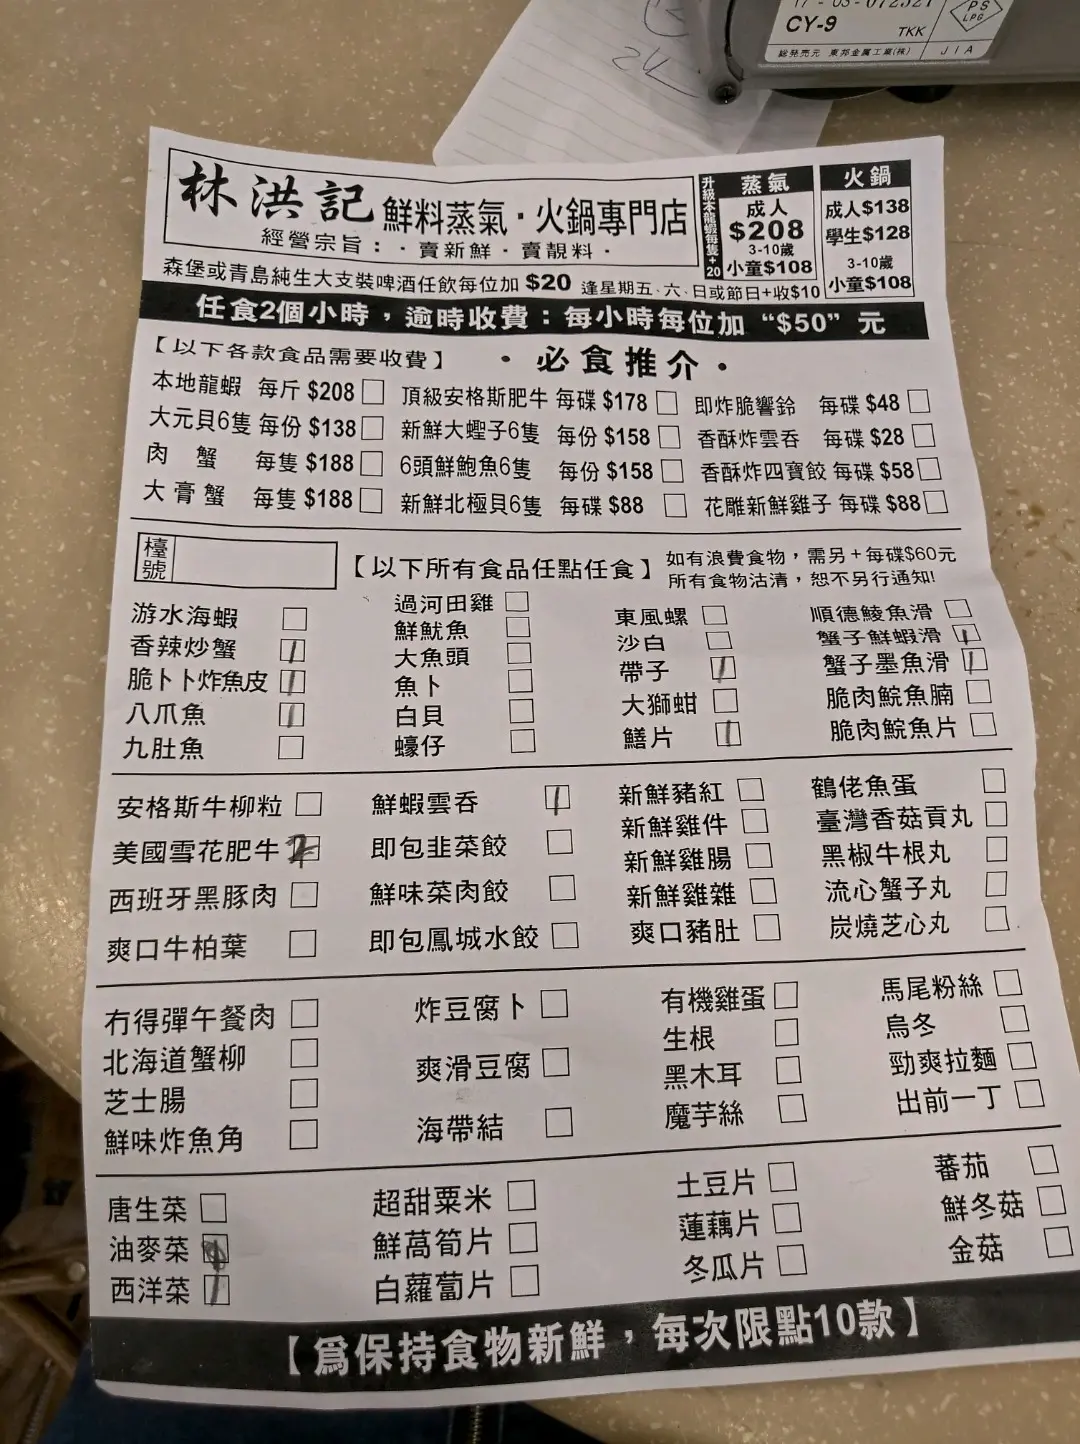 CY-9
TKK
PS
LPG
総発売元 東邦金属工業(株)
JIA
林洪記 鮮料蒸氣·火鍋專門店
經營宗旨:·賣新鮮·賣靚料·
升級本龍蝦每隻+20
蒸氣
成人
$208
3-10歲
小童$108
火鍋
成人$138
學生$128
3-10歲
小童$108
森堡或青島純生大支裝啤酒任飲每位加 $20 逢星期五·六·日或節日+收$10
任食2個小時,逾時收費:每小時每位加 “$50” 元
【以下各款食品需要收費】 ·必食推介·
本地龍蝦 每斤 $208 頂級安格斯肥牛 每碟 $178 即炸脆響鈴 每碟 $48
大元貝6隻 每份 $138 新鮮大蟶子6隻 每份 $158 香酥炸雲吞 每碟 $28
肉蟹 每隻 $188 6頭鮮鮑魚6隻 每份 $158 香酥炸四寶餃 每碟 $58
大膏蟹 每隻 $188 新鮮北極貝6隻 每碟 $88 花雕新鮮雞子 每碟 $88
檯號 【以下所有食品任點任食】 如有浪費食物,需另+每碟$60元
所有食物沽清,恕不另行通知!
游水海蝦 過河田雞 東風螺 順德鯪魚滑
香辣炒蟹 1 鮮魷魚 沙白 蟹子鮮蝦滑 1
脆卜卜炸魚皮 1 大魚頭 帶子 1 蟹子墨魚滑 1
八爪魚 1 魚卜 大獅蚶 脆肉鯇魚腩
九肚魚 白貝 鱔片 1 脆肉鯇魚片
蠔仔
安格斯牛柳粒 鮮蝦雲吞 1 新鮮豬紅 鶴佬魚蛋
美國雪花肥牛 2 即包韭菜餃 新鮮雞件 臺灣香菇貢丸
西班牙黑豚肉 鮮味菜肉餃 新鮮雞腸 黑椒牛根丸
爽口牛柏葉 即包鳳城水餃 新鮮雞雜 流心蟹子丸
爽口豬肚 炭燒芝心丸
冇得彈午餐肉 炸豆腐卜 有機雞蛋 馬尾粉絲
北海道蟹柳 爽滑豆腐 生根 烏冬
芝士腸 海帶結 黑木耳 勁爽拉麵
鮮味炸魚角 魔芋絲 出前一丁
唐生菜 超甜粟米 土豆片 蕃茄
油麥菜 鮮萵筍片 蓮藕片 鮮冬菇
西洋菜 1 白蘿蔔片 冬瓜片 金菇
【爲保持食物新鮮,每次限點10款】